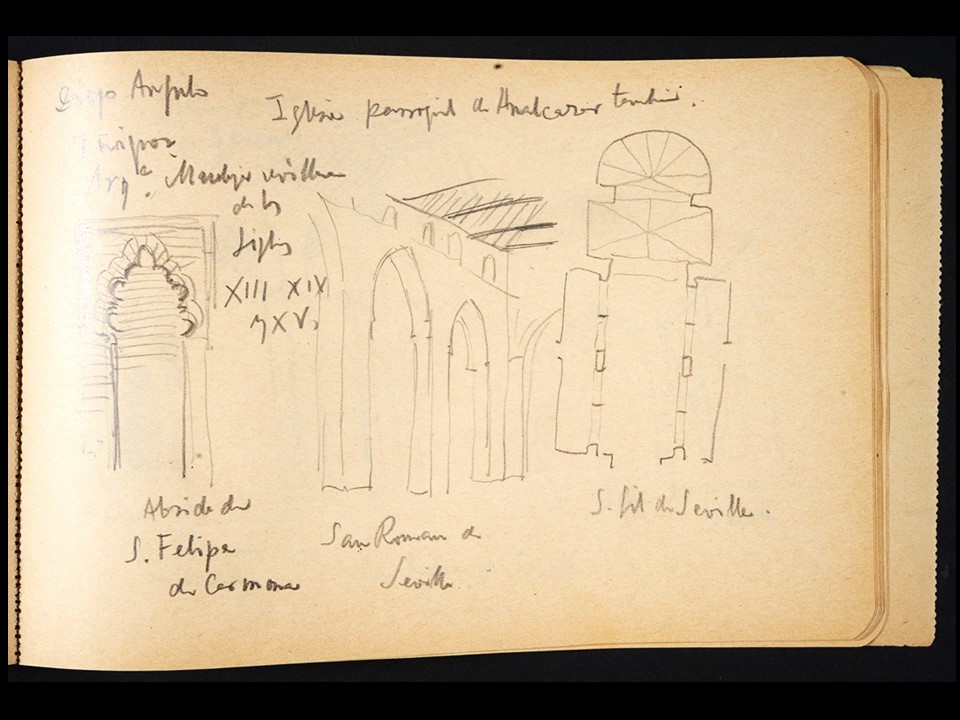 Diego Angulo
Iñiguez
Arqª. Mudejar sevillana
de los
Siglos
XIII XIV
y XV.
Iglesia parroquial de Aznalcazar tambien.
Abside de
S. Felipe
de Carmona
San Roman de
Sevilla.
S. Gil de Sevilla.